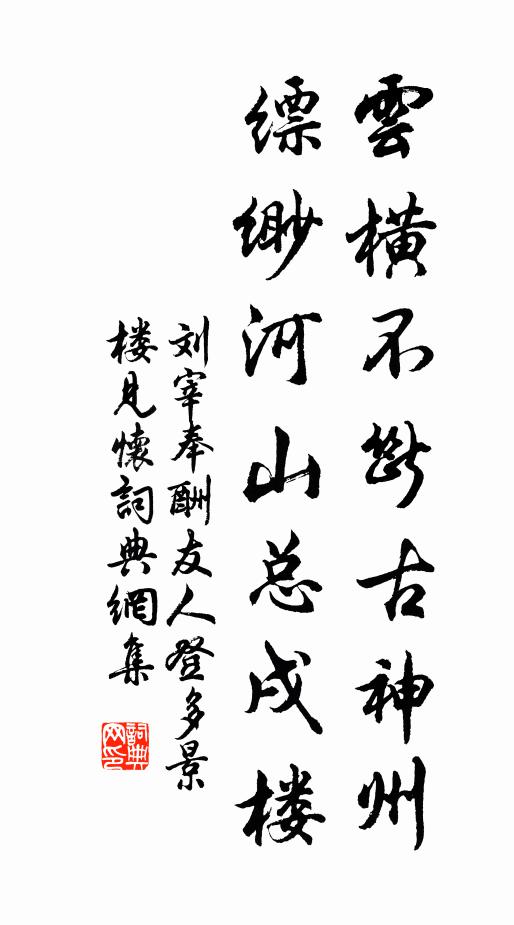 雲橫不斷古神州
缥缈河山总戍楼
刘宰奉酬友人登多景
楼見懷詞典網集
詞典
网印